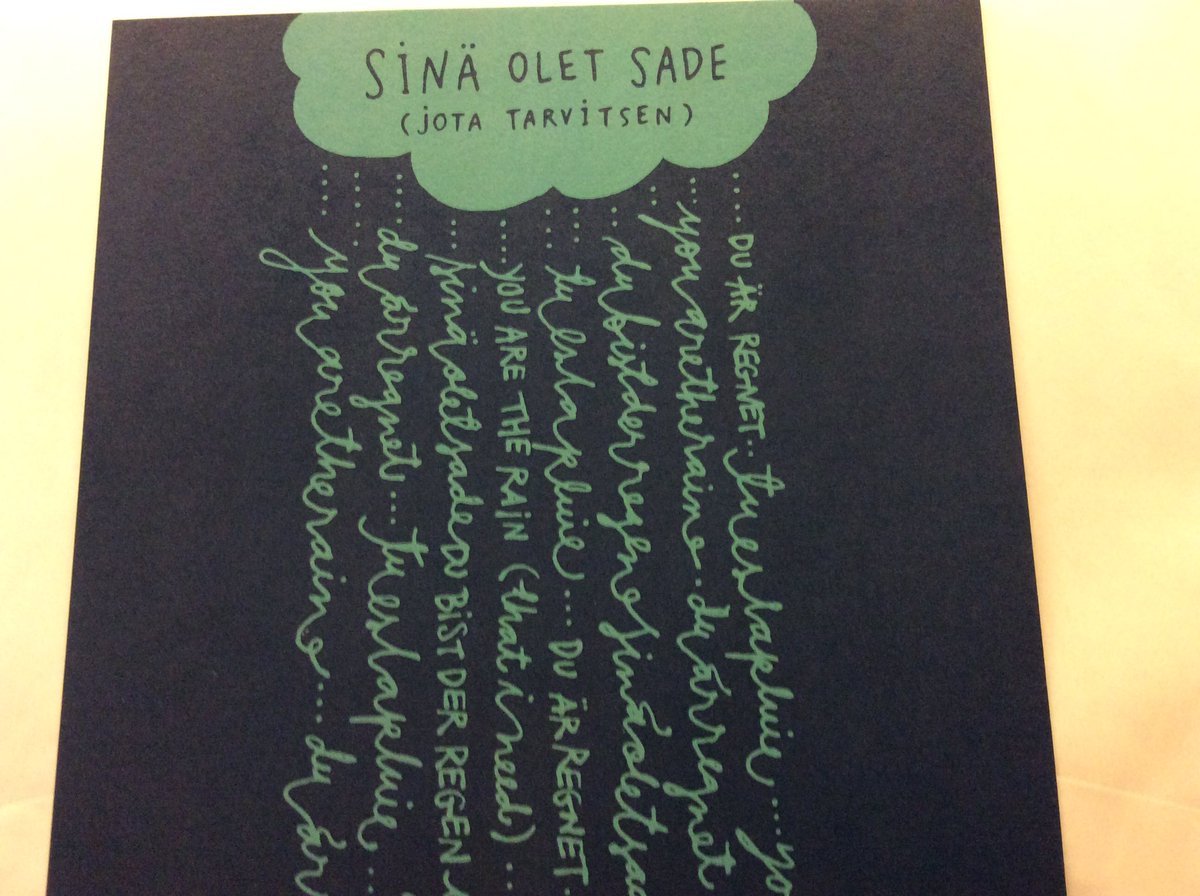 SINÄ OLET SADE
(JOTA TARVITSEN)
.... DU ÄR REGNET.. tueslapluie ....yo
... youaretherain..duärregnet
... dubistderregen sinäoletsa
... tueslapluie.... DU ÄR REGNET.
.... YOU ARE THE RAIN (that i need) ..
... sinäoletsade DU BIST DER REGEN
.... duärregnet... tueslapluie..
.... youaretherain.... duär